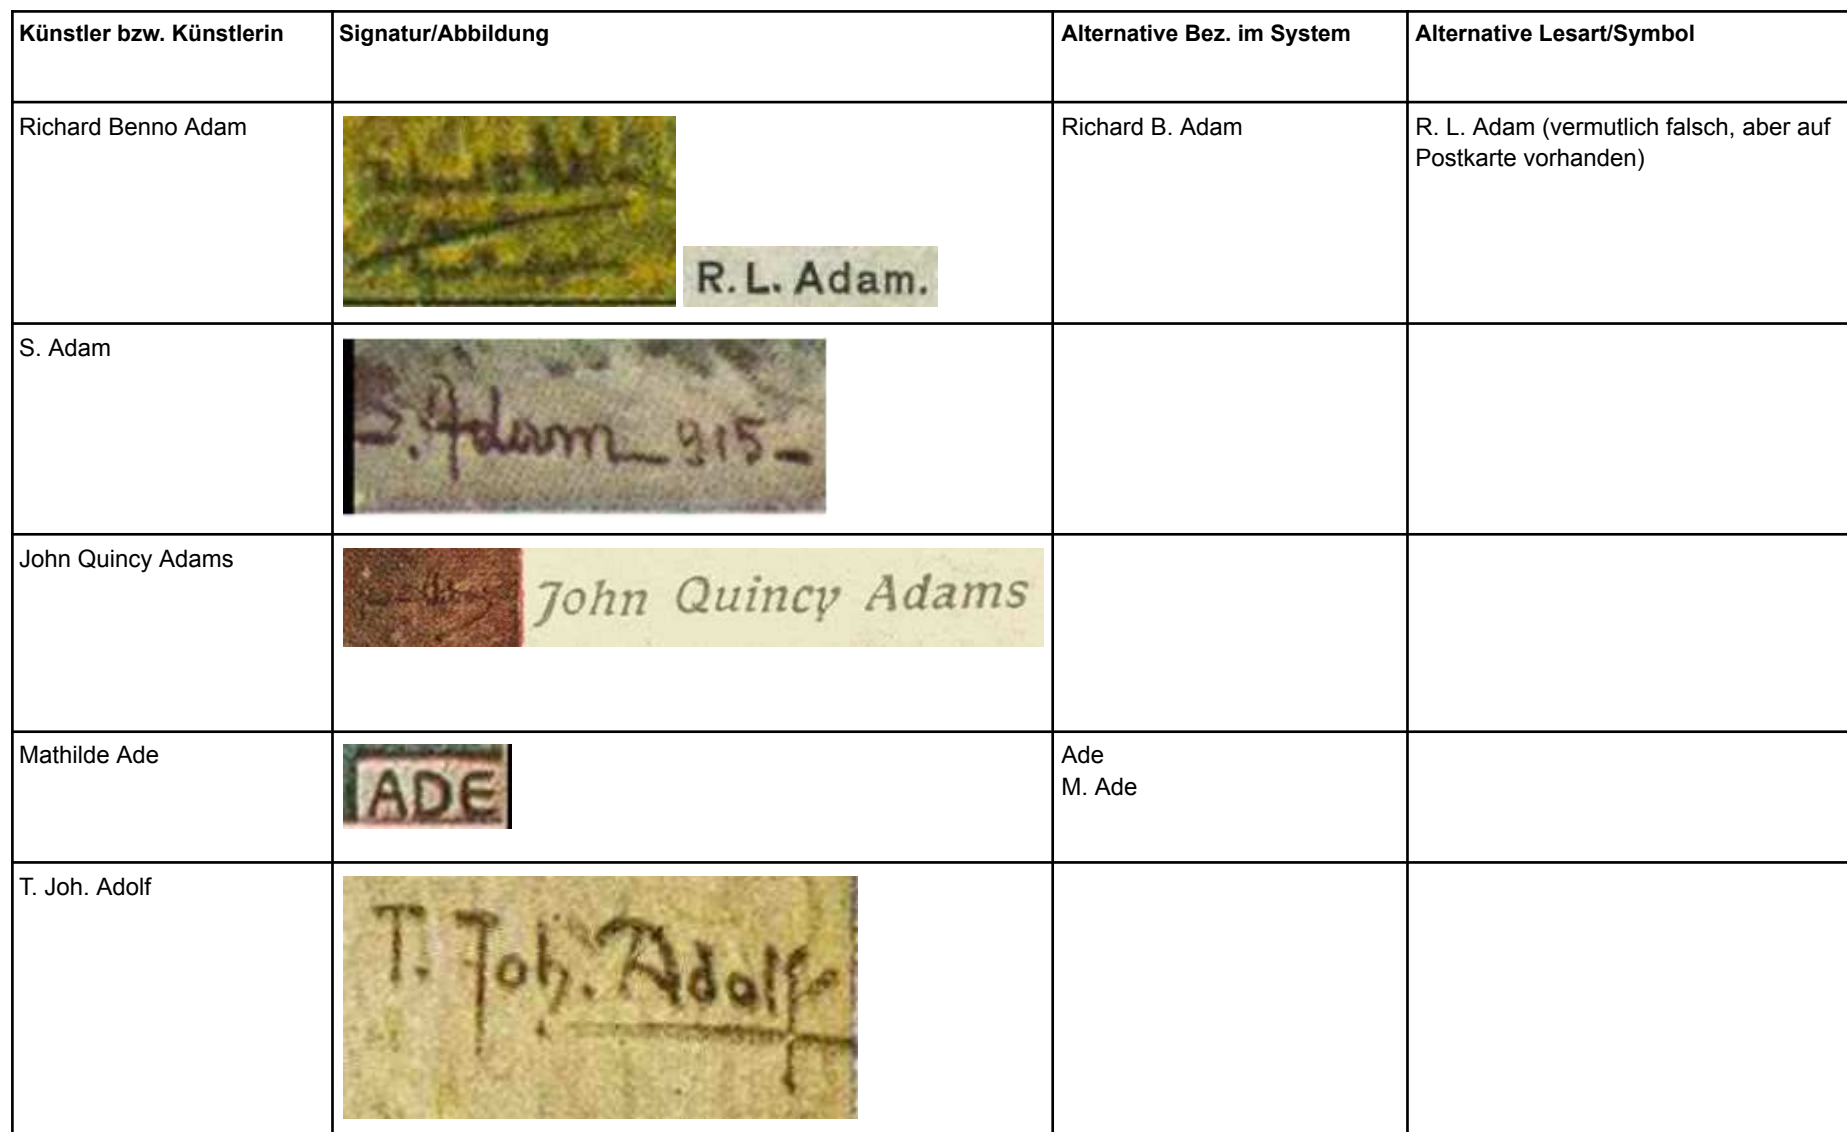 Künstler bzw. Künstlerin Signatur/Abbildung Alternative Bez. im System Alternative Lesart/Symbol
Richard Benno Adam Richard B. Adam R. L. Adam (vermutlich falsch, aber auf
Postkarte vorhanden)
R. L. Adam.
S. Adam
S. Adam 915
John Quincy Adams
John Quincy Adams
Mathilde Ade Ade
ADE M. Ade
T. Joh. Adolf
T. Joh. Adolf